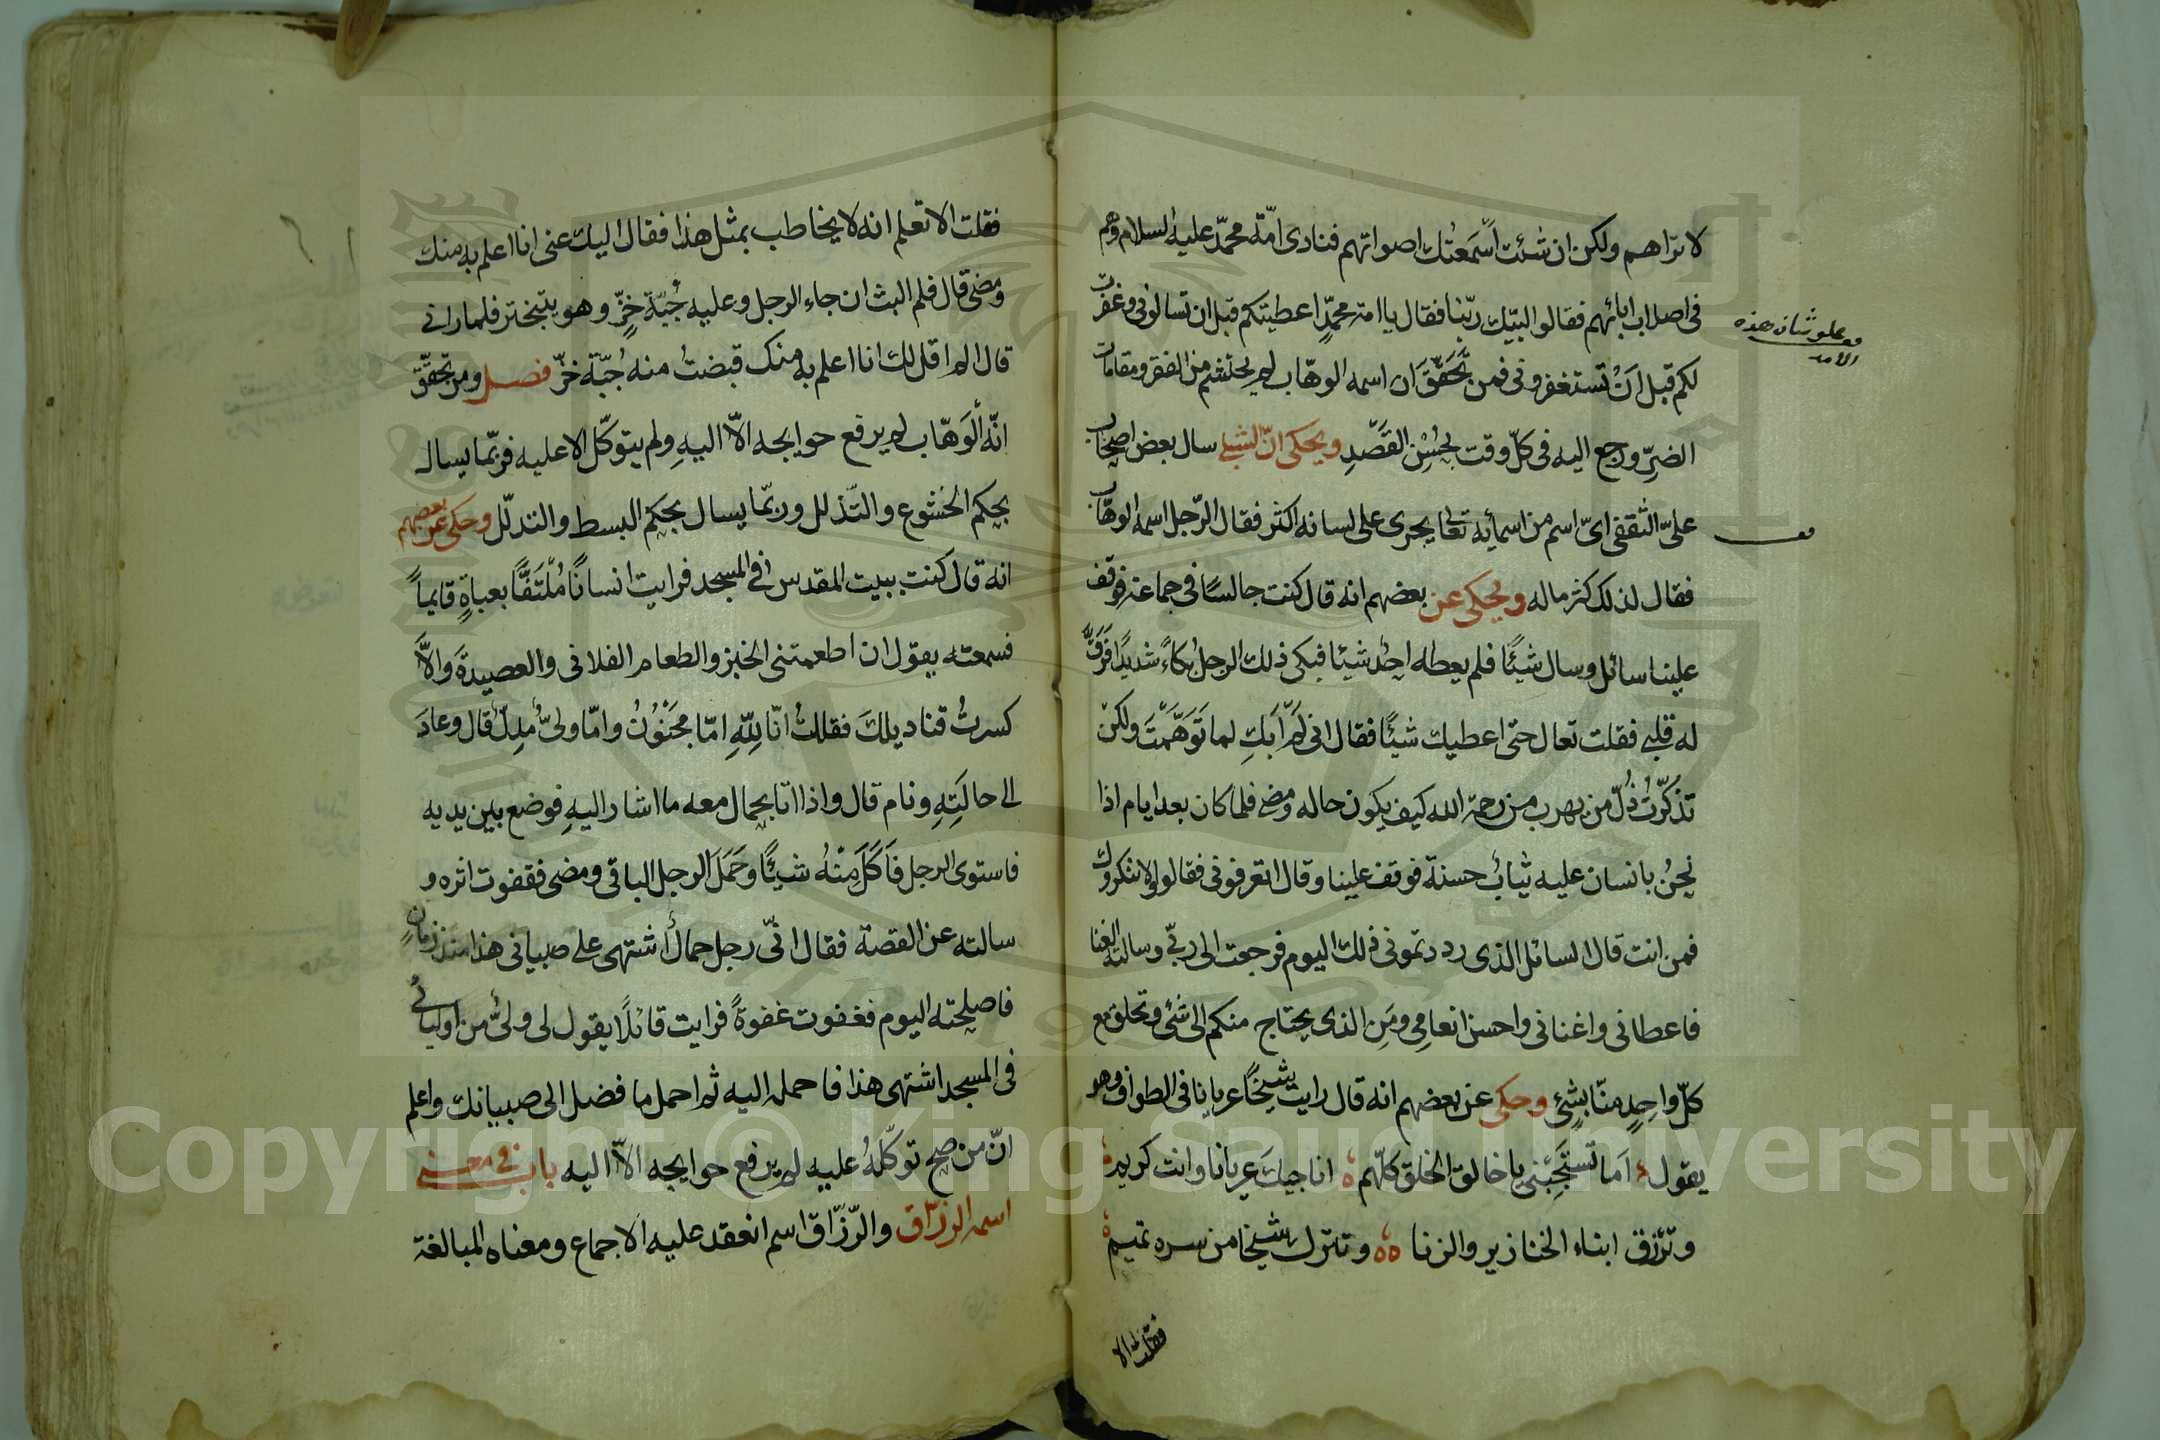 لا تراهم ولكن ان شئت اَسْمَعْتُك اصواتهم فنادى امّة محمّد عليه السلام وهم
فى اصلاب ابائهم فقالوا لبّيك ربّنا فقال يا امة محمّدٍ اعطيتكم قبل ان تسالونى وغفرت
لكم قبل اَنْ تستغفرونى فمن تَحَقَّقَ ان اسمه الوهّاب لم يحتشم من الفقر ومقامات
الضرِّ ورجع اليه فى كلّ وقت بحُسْنِ القَصْدِ ويحكى انّ الشبلى سال بعض اصحاب
علىّ الثقفى اىّ اسم من اسمائه تعالى يجرى على لسانه اكثر فقال الرّجل اسمه الوهّاب
فقال لذلك كثر ماله ويحكى عن بعضهم انه قال كنت جالسًا فى جماعة فوقف
علينا سائل وسال شيئًا فلم يعطه احدٌ شيئا فبكى ذلك الرجل بُكاءً شديدًا فَرَقَّ
له قلبى فقلت تعال حتى اعطيك شيئًا فقال انى لَمْ اَبكِ لما تَوَهَّمْتَ ولكن
تذكّرتُ ذُلّ من يهرب من رحمة الله كيف يكون حاله ومضى فلما كان بعد ايام اذا
نحنُ بانسان عليه ثيابٌ حسنة فوقف علينا وقال اتعرفونى فقالوا لا ننكروك
فمن انت قال السائل الذى رددتمونى ذلك اليوم فرجعت الى ربّى وسالته الغنا
فاعطانى واغنانى واحسن انعامى ومَنِ الذى يحتاج منكم الى شئ وتخلق مع
كلّ واحِدٍ منّا بشئٍ وحكى عن بعضهم انه قال رايت شيخًا عريانا فى الطواف وهو
يقول اَما تَستَحِيْنى يا خالق الخلق كلّهم انا جيك عريانا وانت كريم
وترزق ابناء الخنازير والزنا وتترك شيخا من سره تميم
فقلت الا
وعلو شان هذه
الامة
فقلت الا تعلم انه لا يخاطب بمثل هذا فقال اليك عنى انا اعلم به منك
ومضى قال فلم البث ان جاء الرجل وعليه جُبّة خزٍّ وهو يتبختر فلما رانى
قال الم اقل لك انا اعلم به منك قبضتُ منه جُبّة خزّ فصل ومن تحقّق
انّه اْلوَهّاب لم يرفع حوايجه الاّ اليهِ ولم يتوكّل الا عليه فربّما يسال
بحكم الخشوع والتّذلل وربّما يسال بحكم البسط والتدلّل وحكى عن بعضهم
انه قال كنت ببيت المقدس فى المسجد فرايت انسانًا مُلْتَفًّا بعباةٍ قايماً
فسمعته يقول ان اطعمتنى الخبز والطعام الفلانى والعصيدةَ والاَّ
كسرتُ قناديلك فقلتُ انّا لِلّهِ امّا مجنَوُنٌ وامّا ولىٌّ مدِلّ قال وعادَ
الى حالَتِهِ ونام قال واذا انا بحمال معه ما اشار اليهِ فوضع بين يديه
فاستوى الرجل فَاَكَلَ مِنْهُ شيئًا وحَمَلَ الرجل الباقى ومضى فقفوت اثره و
سالته عن القصة فقال انّى رجل حمال اشتهى على صبيانى هذا منذ زمانٍ
فاصلحته اليوم فغفوت غفوةً فرايت قائلًا يقول لى ولىٌّ من اوليائى
فى المسجد اشتهى هذا فاحمله اليه ثم احمل ما فضل الى صبيانك واعلم
انّ من صح توكّلهُ عليه لم يرفع حوايجه الاّ اليه باب فى معنى
اسمه الرزّاق والرّزّاق اسم انعقد عليه الاجماع ومعناه المبالغة
Copyright © King Saud University